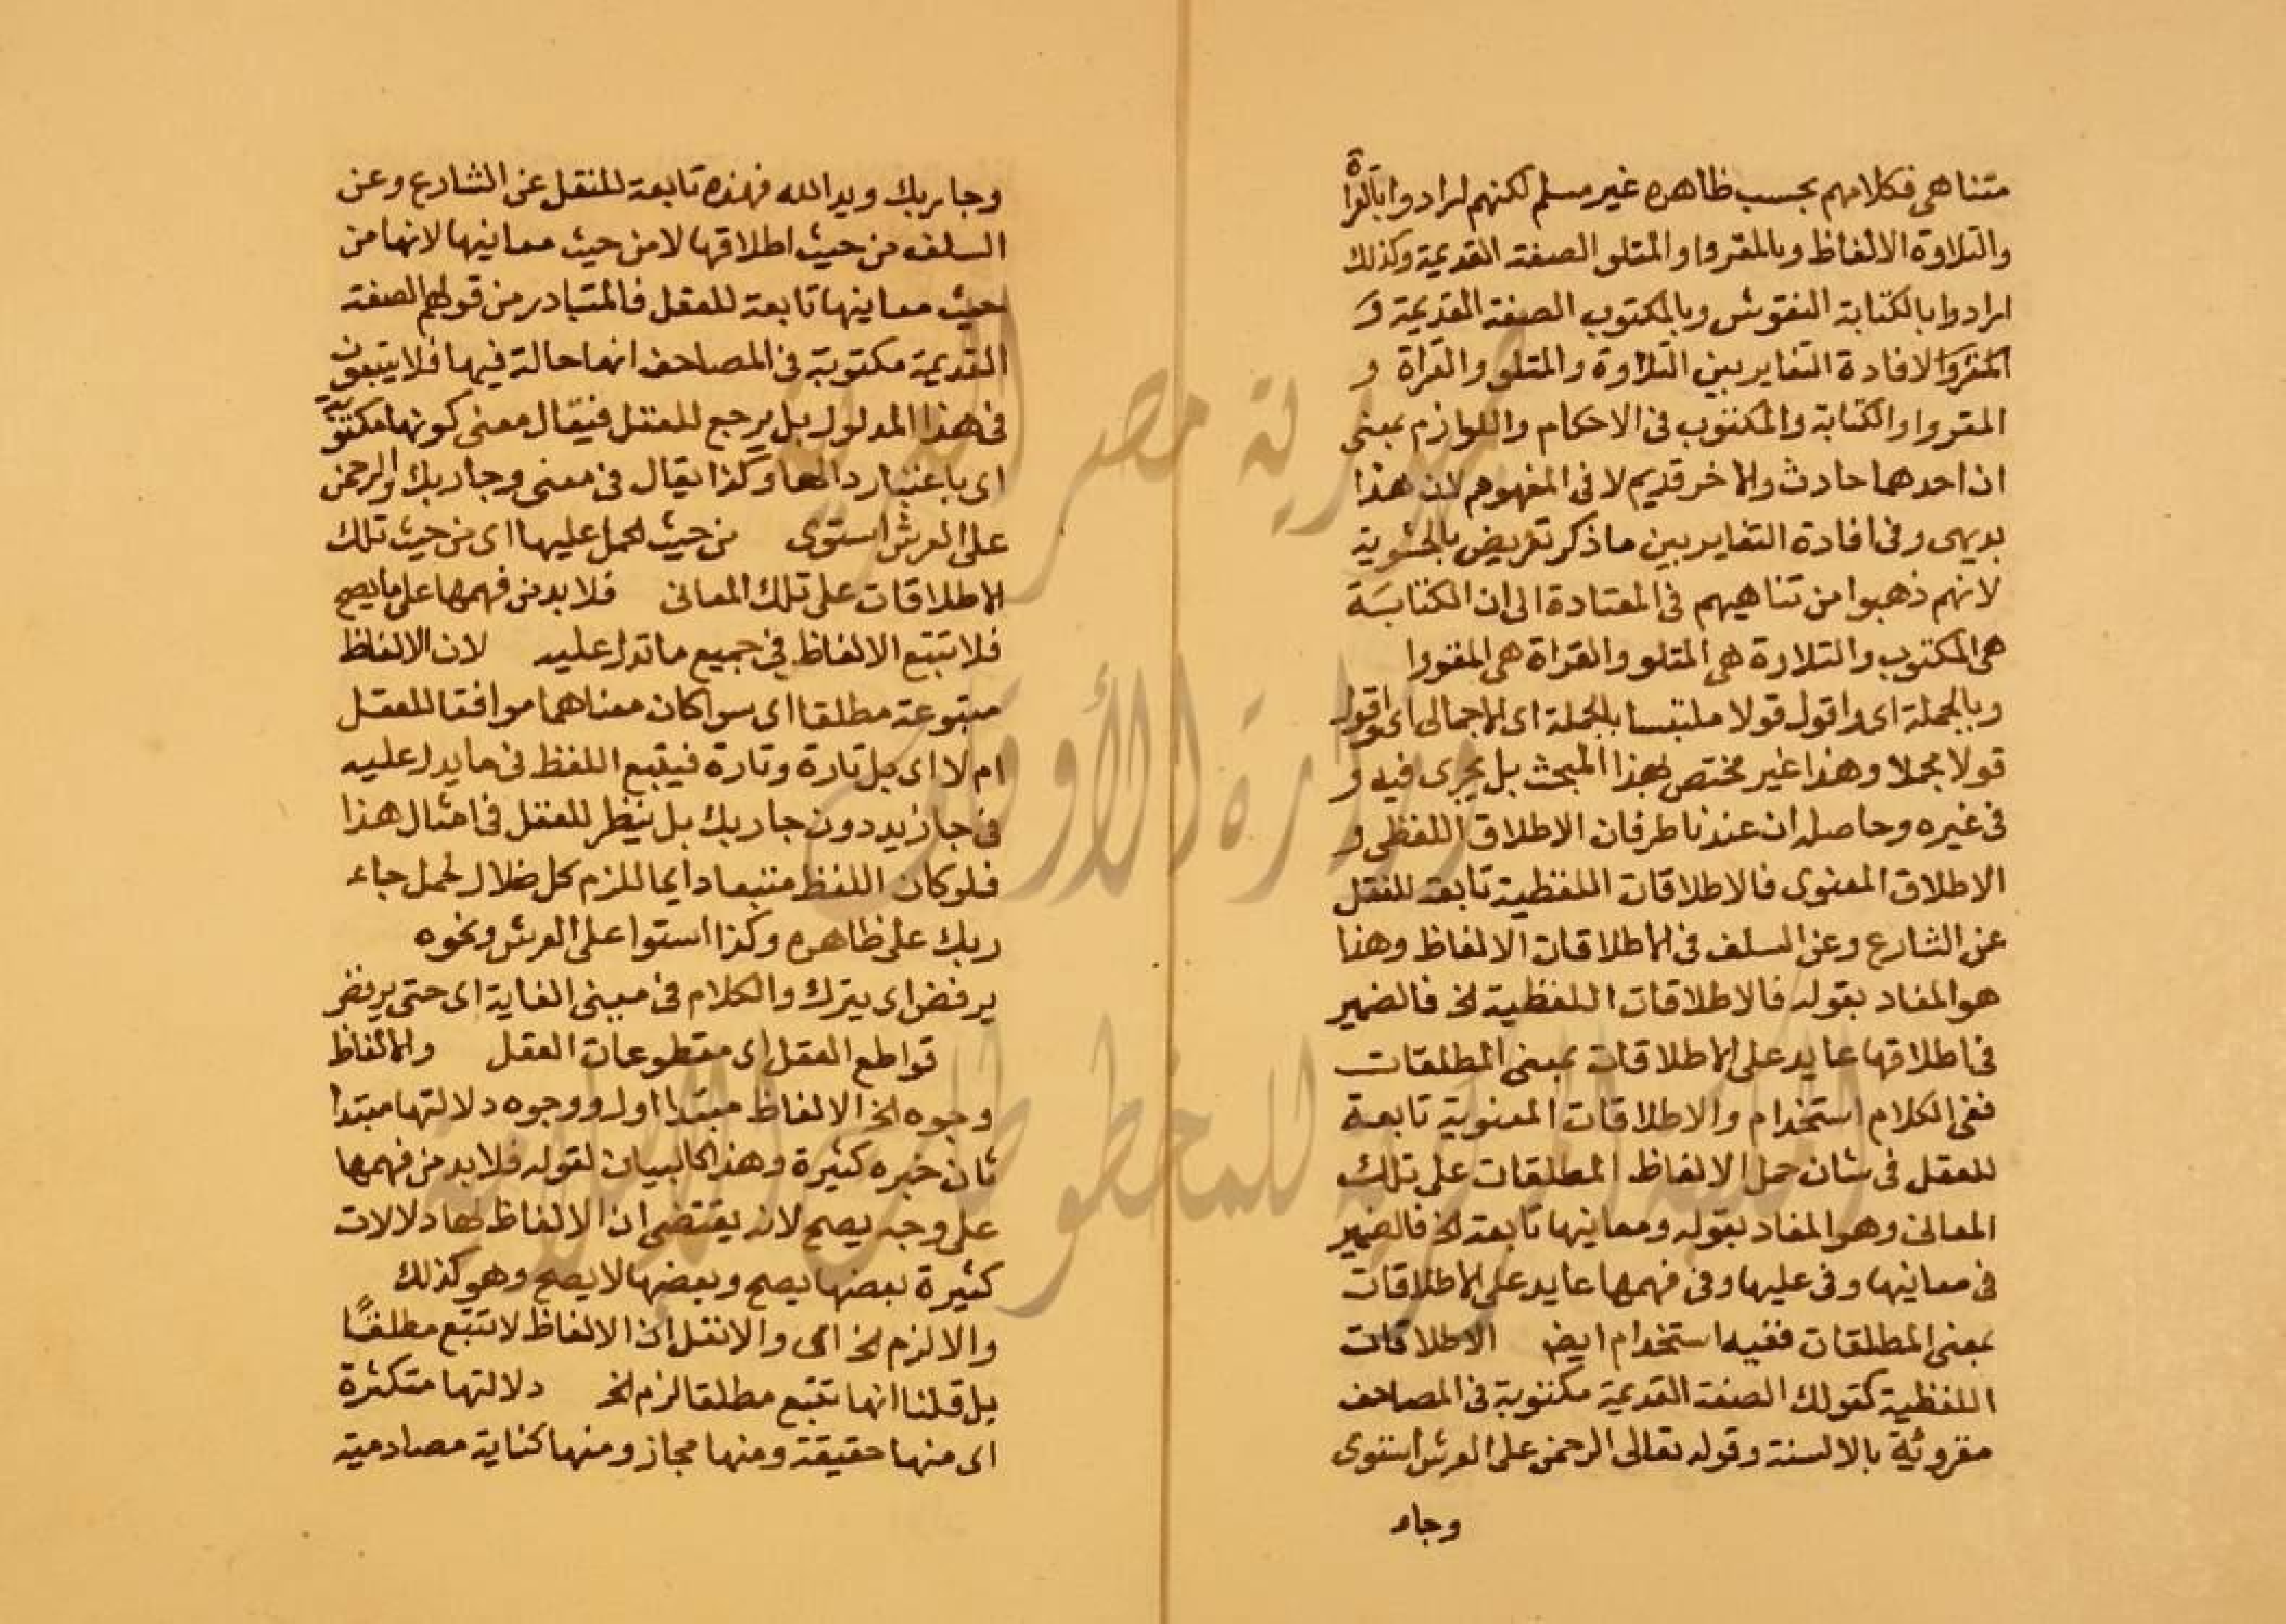 متناهي فكلامهم بحسب ظاهره غير مسلم لكنهم ارادوا بالقراة
والتلاوة الالفاظ وبالمقروا والمتلو الصفة القديمة وكذلك
ارادوا بالكتابة النقوش وبالمكتوب الصفة القديمة و
المقروا لافادة التغاير بين التلاوة والمتلو والقراة و
المقروا والكتابة والمكتوب في الاحكام واللوازم بمعنى
ان احدهما حادث والاخر قديم لا في المفهوم لان هذا
بديهى وفي افادة التغاير بين ما ذكر تعريض بالحشوية
لانهم ذهبوا من تناهيهم في المعتادة الى ان الكتابة
هى المكتوب والتلاوة هى المتلو والقراة هى المقروا
وبالجملة اى واقول قولا ملتبسا بالجملة اى الاجمالى اى واقول
قولا مجملا وهذا غير مختص بهذا المبحث بل يجرى فيه و
في غيره وحاصله ان عندنا طرفان الاطلاق اللفظى و
الاطلاق المعنوى فالاطلاقات اللفظية تابعة للنقل
عن الشارع وعن السلف في الاطلاقات الالفاظ وهذا
هو المفاد بقوله فالاطلاقات اللفظية الخ فالضمير
في اطلاقها عايد على الاطلاقات بمعنى المطلقات
ففى الكلام استخدام والاطلاقات المعنوية تابعة
للعقل في شان حمل الالفاظ المطلقات على تلك
المعانى وهو المفاد بقوله ومعاينها تابعة الخ فالضمير
في معاينها وفي عليها وفي فهمها عايد على الاطلاقات
بمعنى المطلقات ففيه استخدام ايض الاطلاقات
اللفظية كقولك الصفة القديمة مكتوبة في المصاحف
مقروئة بالالسنة وقوله تعالى الرحمن على العرش استوى
وجاء
وجا ربك ويد الله فهذه تابعة للنقل عن الشارع وعن
السلف من حيث اطلاقها لا من حيث معانيها لانها من
حيث معاينها تابعة للعقل فالمتبادر من قولهم الصفة
القديمة مكتوبة في المصاحف انها حالة فيها فلا يتبعون
في هذا المدلول بل يرجع للعقل فيقال معنى كونها مكتوبة
اى باعتبار دالها وكذا يقال في معنى وجا ربك والرحمن
على العرش استوى من حيث الحمل عليها اى من حيث تلك
الاطلاقات على تلك المعانى فلا بد من فهمها على ما يصح
فلا تتبع الالفاظ في جميع ما تدل عليه لان الالفاظ
متبوعة مطلقا اى سوا كان معناهما موافقا للعقل
ام لا اى بل تارة وتارة فيتبع اللفظ في ما يدل عليه
في جا زيد دون جا ربك بل ينظر للعقل في امثال هذا
فلو كان اللفظ متبعا دايما للزم كل ضلال لحمل جاء
ربك على ظاهره وكذا استوا على العرش ونحوه
يرفض اى يترك والكلام في معنى الغاية اى حتى يرفض
قواطع العقل اى مقطوعات العقل والالفاظ
وجوه الخ الالفاظ مبتدا اول ووجوه دلالتها مبتدا
ثان خبره كثيرة وهذا كالبيان لقوله فلا بد من فهمها
على وجه يصح لانه يقتضى ان الالفاظ لها دلالات
كثيرة بعضها يصح وبعضها لا يصح وهو كذلك
والا لزم الخ اى والا نقل ان الالفاظ لا تتبع مطلقًا
بل قلنا انها تتبع مطلقا لزم الخ دلالتها متكثرة
اى منها حقيقة ومنها مجاز ومنها كناية مصادمية
جمهورية مصر العربية
وزارة الأوقاف
المكتبة المركزية للمخطوطات الإسلامية